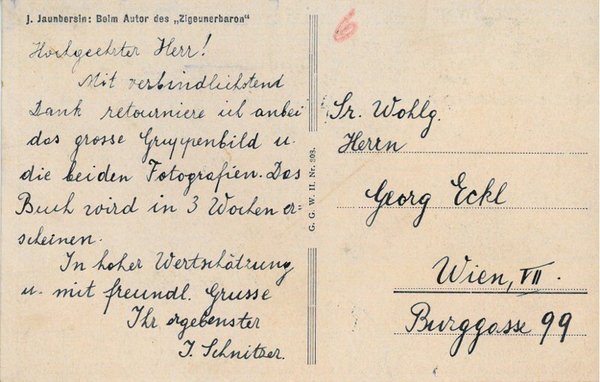 J. Jaunbersin: Beim Autor des „Zigeunerbaron"
Hochgeehrter Herr!
Mit verbindlichstend
Dank retourniere ich anbei
das grosse Gruppenbild u.
die beiden Fotografien. Das
Buch wird in 3 Wochen er-
scheinen.
In hoher Wertschätzung
u. mit freundl. Grusse
Ihr ergebenster
I. Schnitzer.
G. G. W. II. Nr. 803.
6
Sr. Wohlg.
Herrn
Georg Eckl
Wien, VII.
Burggasse 99